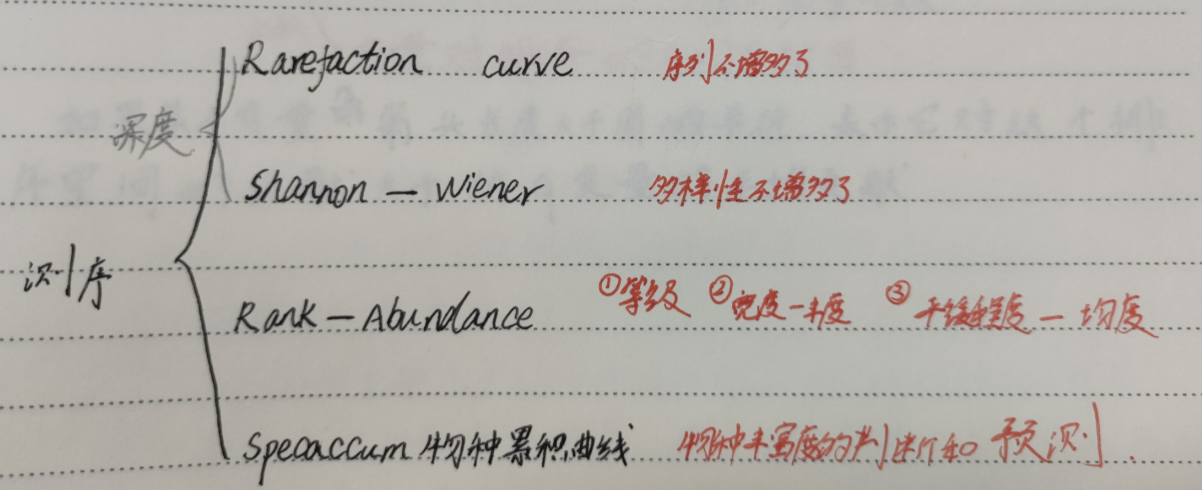 Rarefaction curve 序列不增多了
深度
Shannon — Wiener 多样性不增多了
测序
Rank — Abundance ①等级 ②宽度—丰度 ③平缓程度 — 均度
Specaccum 物种累积曲线 物种丰富度的判断和预测.